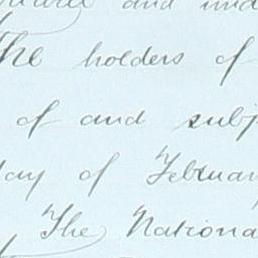 and und
The holders of
of and subj
day of February
The Nationa